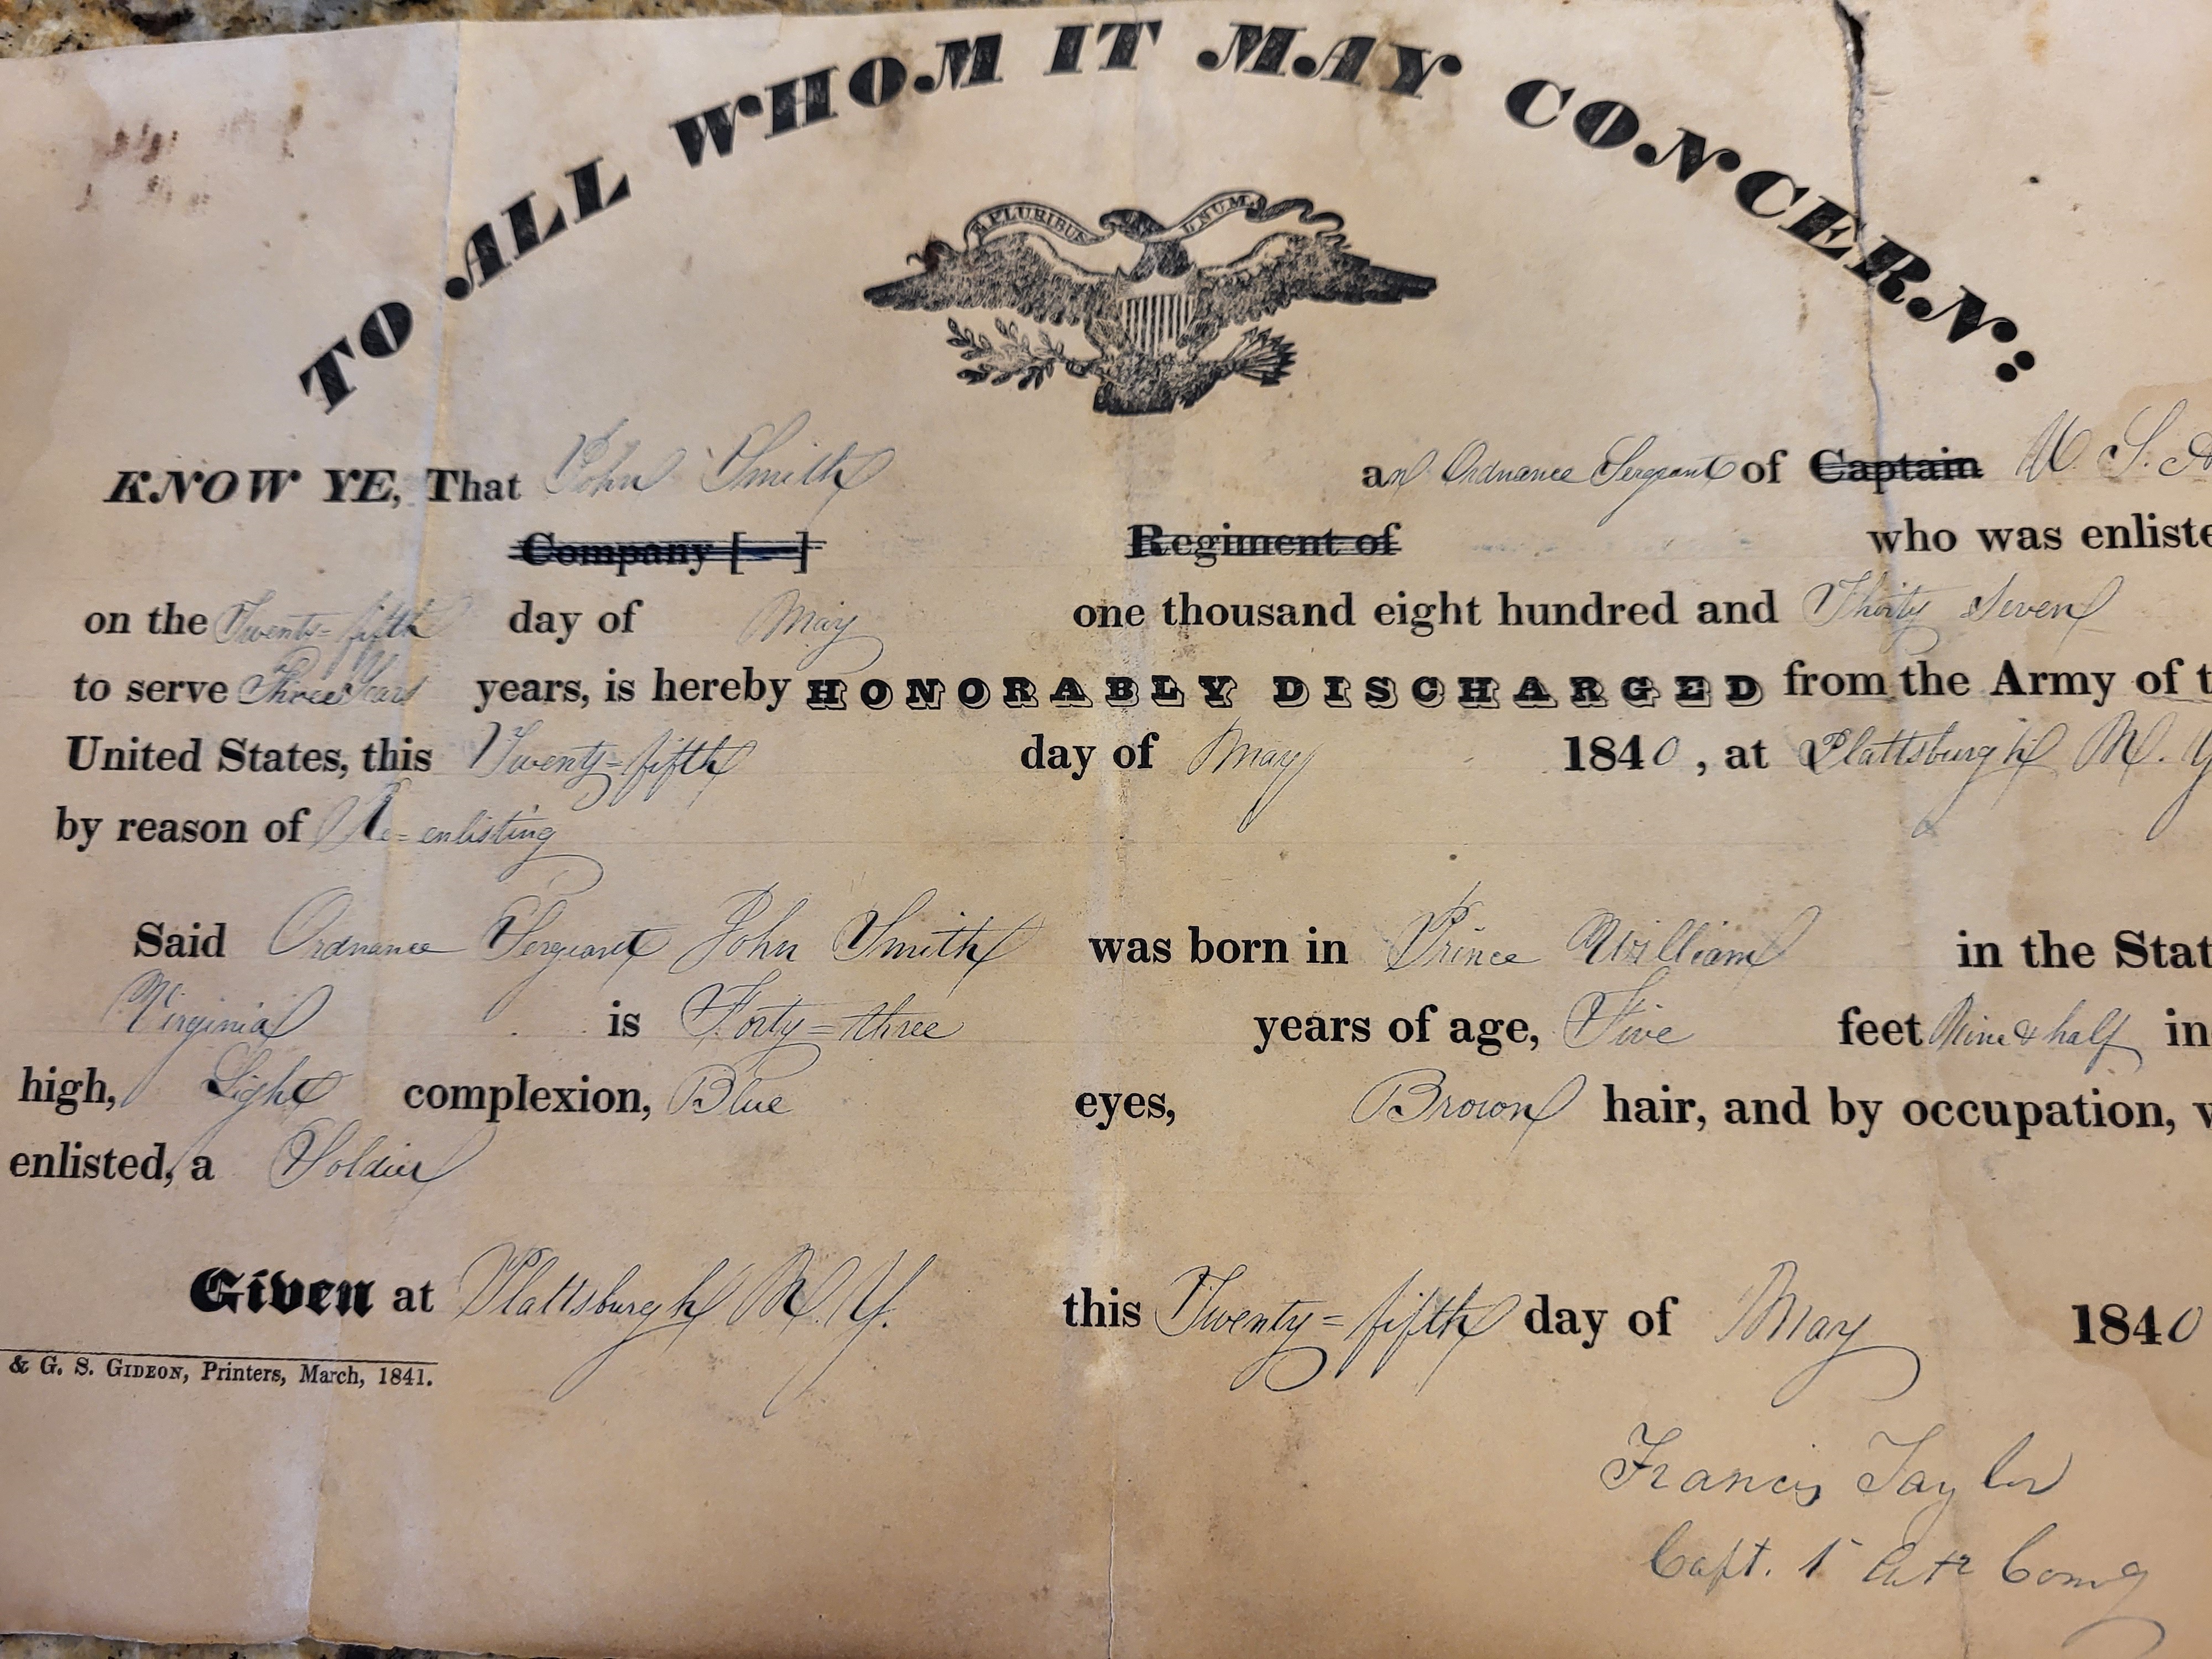 TO ALL WHOM IT MAY CONCERN:
E PLURIBUS UNUM
KNOW YE, That John Smith an Ordnance Sergeant of Captain U. S. A
Company [ ] Regiment of who was enliste
on the Twenty-fifth day of May one thousand eight hundred and Thirty Seven
to serve Three Years years, is hereby HONORABLY DISCHARGED from the Army of t
United States, this Twenty-fifth day of May 1840, at Plattsburgh N. Y
by reason of Re-enlisting
Said Ordnance Sergeant John Smith was born in Prince William in the Stat
Virginia is Forty-three years of age, Five feet Nine & half in
high, Light complexion, Blue eyes, Brown hair, and by occupation, w
enlisted, a Soldier
Given at Plattsburgh N. Y. this Twenty-fifth day of May 1840
& G. S. GIDEON, Printers, March, 1841.
Francis Taylor
Capt. 1st Arty Comg